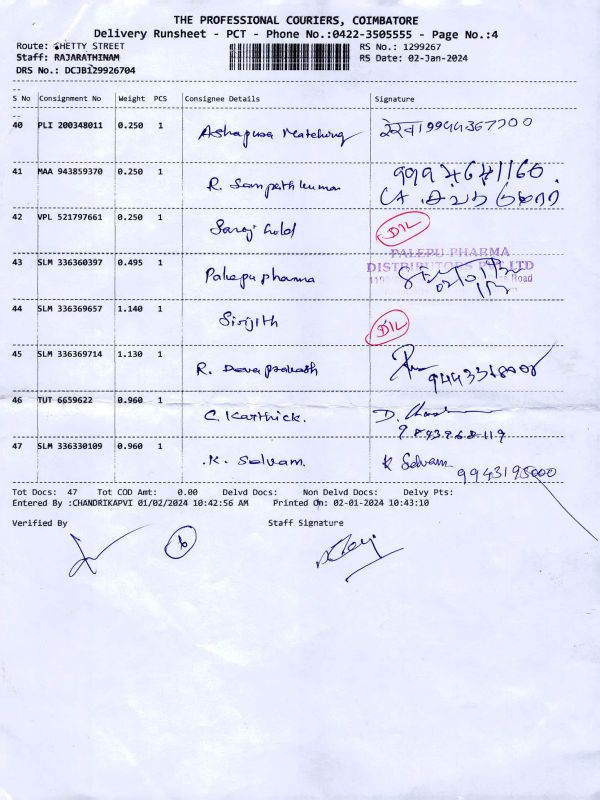 THE PROFESSIONAL COURIERS, COIMBATORE
Delivery Runsheet - PCT - Phone No.:0422-3505555 - Page No.:4
Route: SHETTY STREET RS No.: 1299267
Staff: RAJARATHINAM RS Date: 02-Jan-2024
DRS No.: DCJB129926704
S No Consignment No Weight PCS Consignee Details Signature
40 PLI 200348011 0.250 1 Ashapura Matching 9944367700
41 MAA 943859370 0.250 1 R. Sampath kumar
42 VPL 521797661 0.250 1 Saroj Gold D/L
PALEPU PHARMA
43 SLM 336360397 0.495 1 Palepu pharma DISTRIBUTORS PVT LTD
Road
44 SLM 336369657 1.140 1 Sirijith D/L
45 SLM 336369714 1.130 1 R. Deva prakash
46 TUT 6659622 0.960 1 C. Karthick. D.
9843968119
47 SLM 336330109 0.960 1 K. Selvam. K Selvam 9943195000
Tot Docs: 47 Tot COD Amt: 0.00 Delvd Docs: Non Delvd Docs: Delvy Pts:
Entered By :CHANDRIKAPVI 01/02/2024 10:42:56 AM Printed On: 02-01-2024 10:43:10
Verified By Staff Signature